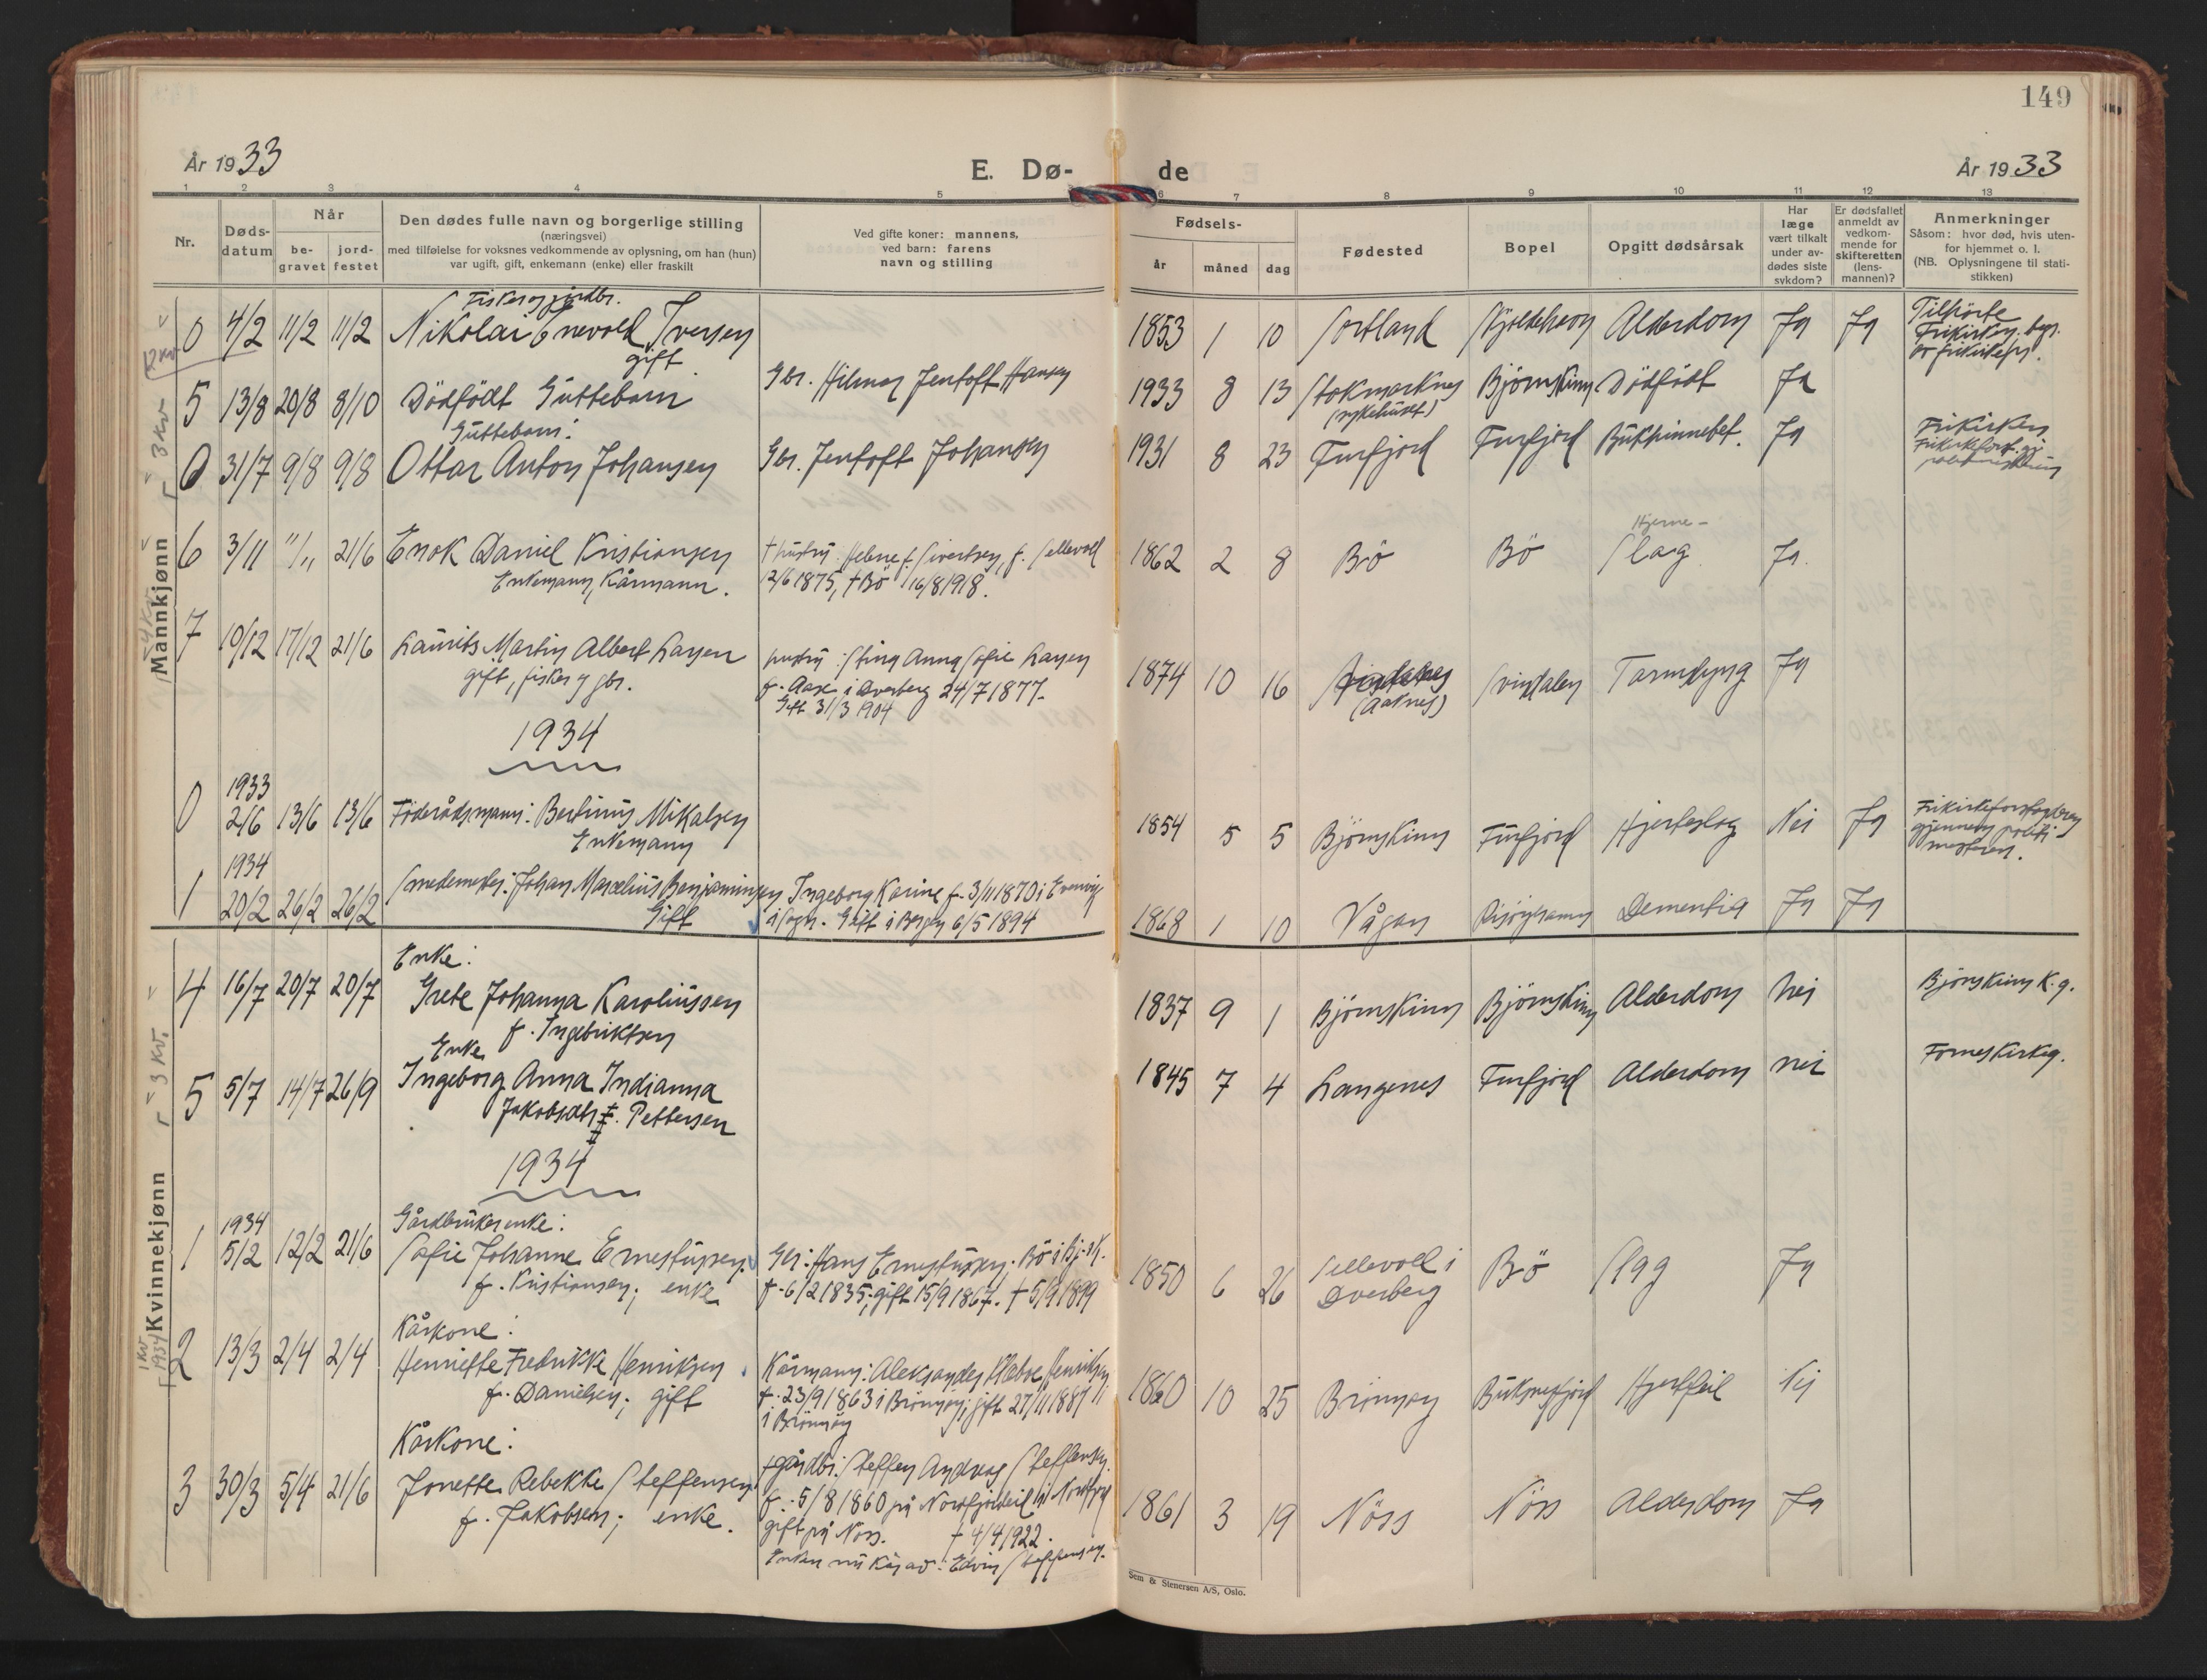 149
År 1933
E. Dø-
de
År 1933
1 2 3 4 5 6 7 8 9 10 11 12 13
Nr.
Døds-
datum
Når
be-
gravet
jord-
festet
Den dødes fulle navn og borgerlige stilling
(næringsvei)
med tilføielse for voksnes vedkommende av oplysning, om han (hun)
var ugift, gift, enkemann (enke) eller fraskilt
Ved gifte koner: mannens,
ved barn: farens
navn og stilling
Fødsels-
år
måned
dag
Fødested
Bopel
Opgitt dødsårsak
Har
læge
vært tilkalt
under av-
dødes siste
sykdom?
Er dødsfallet
anmeldt av
vedkom-
mende for
skifteretten
(lens-
mannen)?
Anmerkninger
Såsom: hvor død, hvis uten-
for hjemmet o. l.
(NB. Oplysningene til stati-
stikken)
Mannkjønn
Fisker og jordbr.
0 4/2 11/2 11/2 Nikolai Enevold Iversen
gift
1853 1 10 Sortland Skjoldehavn Alderdom Ja Ja Tilhörte
Frikirken.
5 13/8 20/8 8/10 Dödfödt Guttebarn Gbr. Hilmar Jentoft Hansen 1933 8 13 Stokmarknes
(sykehuset)
Björnskinn Dödfödt Ja
Guttebarn:
0 31/7 9/8 9/8 Ottar Anton Johansen Gbr. Jentoft Johansen 1931 8 23 Finfjord Finfjord Bukhinnebet. Ja Frikirken
6 3/11 "/" 21/6 Enok Daniel Kristiansen
Enkemann, Kårmann.
† hustru: Helene f. Sivertsen, f. Sellevoll
12/6 1875, † Bö 16/8 1918.
1862 2 8 Bö Bö Hjerne-
Slag Ja.
7 10/12 17/12 21/6 Laurits Martin Albert Larsen
gift, fisker og gbr.
hustru: Stina Anna Sofie Larsen
f. Aase i Dverberg 24/7 1877.
Gift 31/3 1904
1874 10 16
(Aaknes)
Svindalen Tarmslyng Ja
1934
1933
0 2/6 13/6 13/6 Föderådsmann: Bertinus Mikalsen
Enkemann
1854 5 5 Björnskinn Finfjord Hjerteslag Nei Ja Frikirkeforstanderen
gjennem politi-
mesteren.
1934
1 20/2 26/2 26/2 Smedemester: Johan Marselius Benjaminsen
Gift
Ingeborg Karine f. 3/11 1870 i Evenvig
i Sogn. Gift i Bergen 6/5 1894
1868 1 10 Vågan Risöyhamn Dementia Ja Ja
Kvinnekjønn
Enke:
4 16/7 20/7 20/7 Grete Johanna Karoliussen
f. Ingebriktsen
1837 9 1 Björnskinn Björnskinn Alderdom Nei Björnskinn K.g.
Enke
5 5/7 14/7 26/9 Ingeborg Anna Indianna
Jakobsdtr. Pettersen
1845 7 4 Langenes Finfjord Alderdom nei Fornes Kirkeg.
1934
Gårdbrukerenke:
1934
1 5/2 12/2 21/6 Sofie Johanne Ernestussen
f. Kristiansen; enke
Gbr: Hans Ernestussen. Bö i Bj.sk.
f. 6/2 1835; gift 15/9 1867. † 5/9 1899
1850 6 26 Sellevoll i
Dverberg
Bö Slag Ja
Kårkone:
2 13/3 2/4 2/4 Henriette Fredrikke Henriksen
f. Danielsen; gift
Kårmann: Aleksander Henriksen
f. 23/9 1863 i Brönnöy; gift 27/11 1887
i Brönnöy
1860 10 25 Brönnöy Buknesfjord Hjertfeil Nei
Kårkone:
3 30/3 5/4 21/6 Jonette Rebekke Steffensen
f. Jakobsen; enke.
† gårdbr: Steffen Andreas Steffensen.
f. 5/8 1860 på Nordfjordeid i Nordfjord
gift på Nöss. † 4/4 1922.
1861 3 19 Nöss Nöss Alderdom Ja
Sem & Stenersen A/S, Oslo.